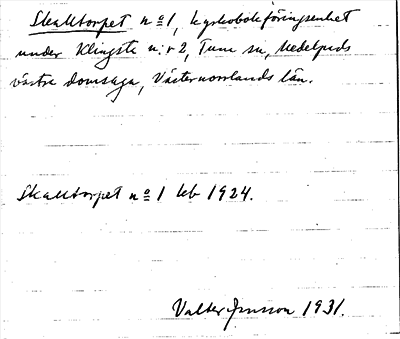 Skalltorpet nº 1, kyrkobokföringsenhet
under Klingsta n:r 2, Tuna sn, Medelpads
västra domsaga, Västernorrlands län.
Skalltorpet nº 1 kb 1924.
Valter Jansson 1931.